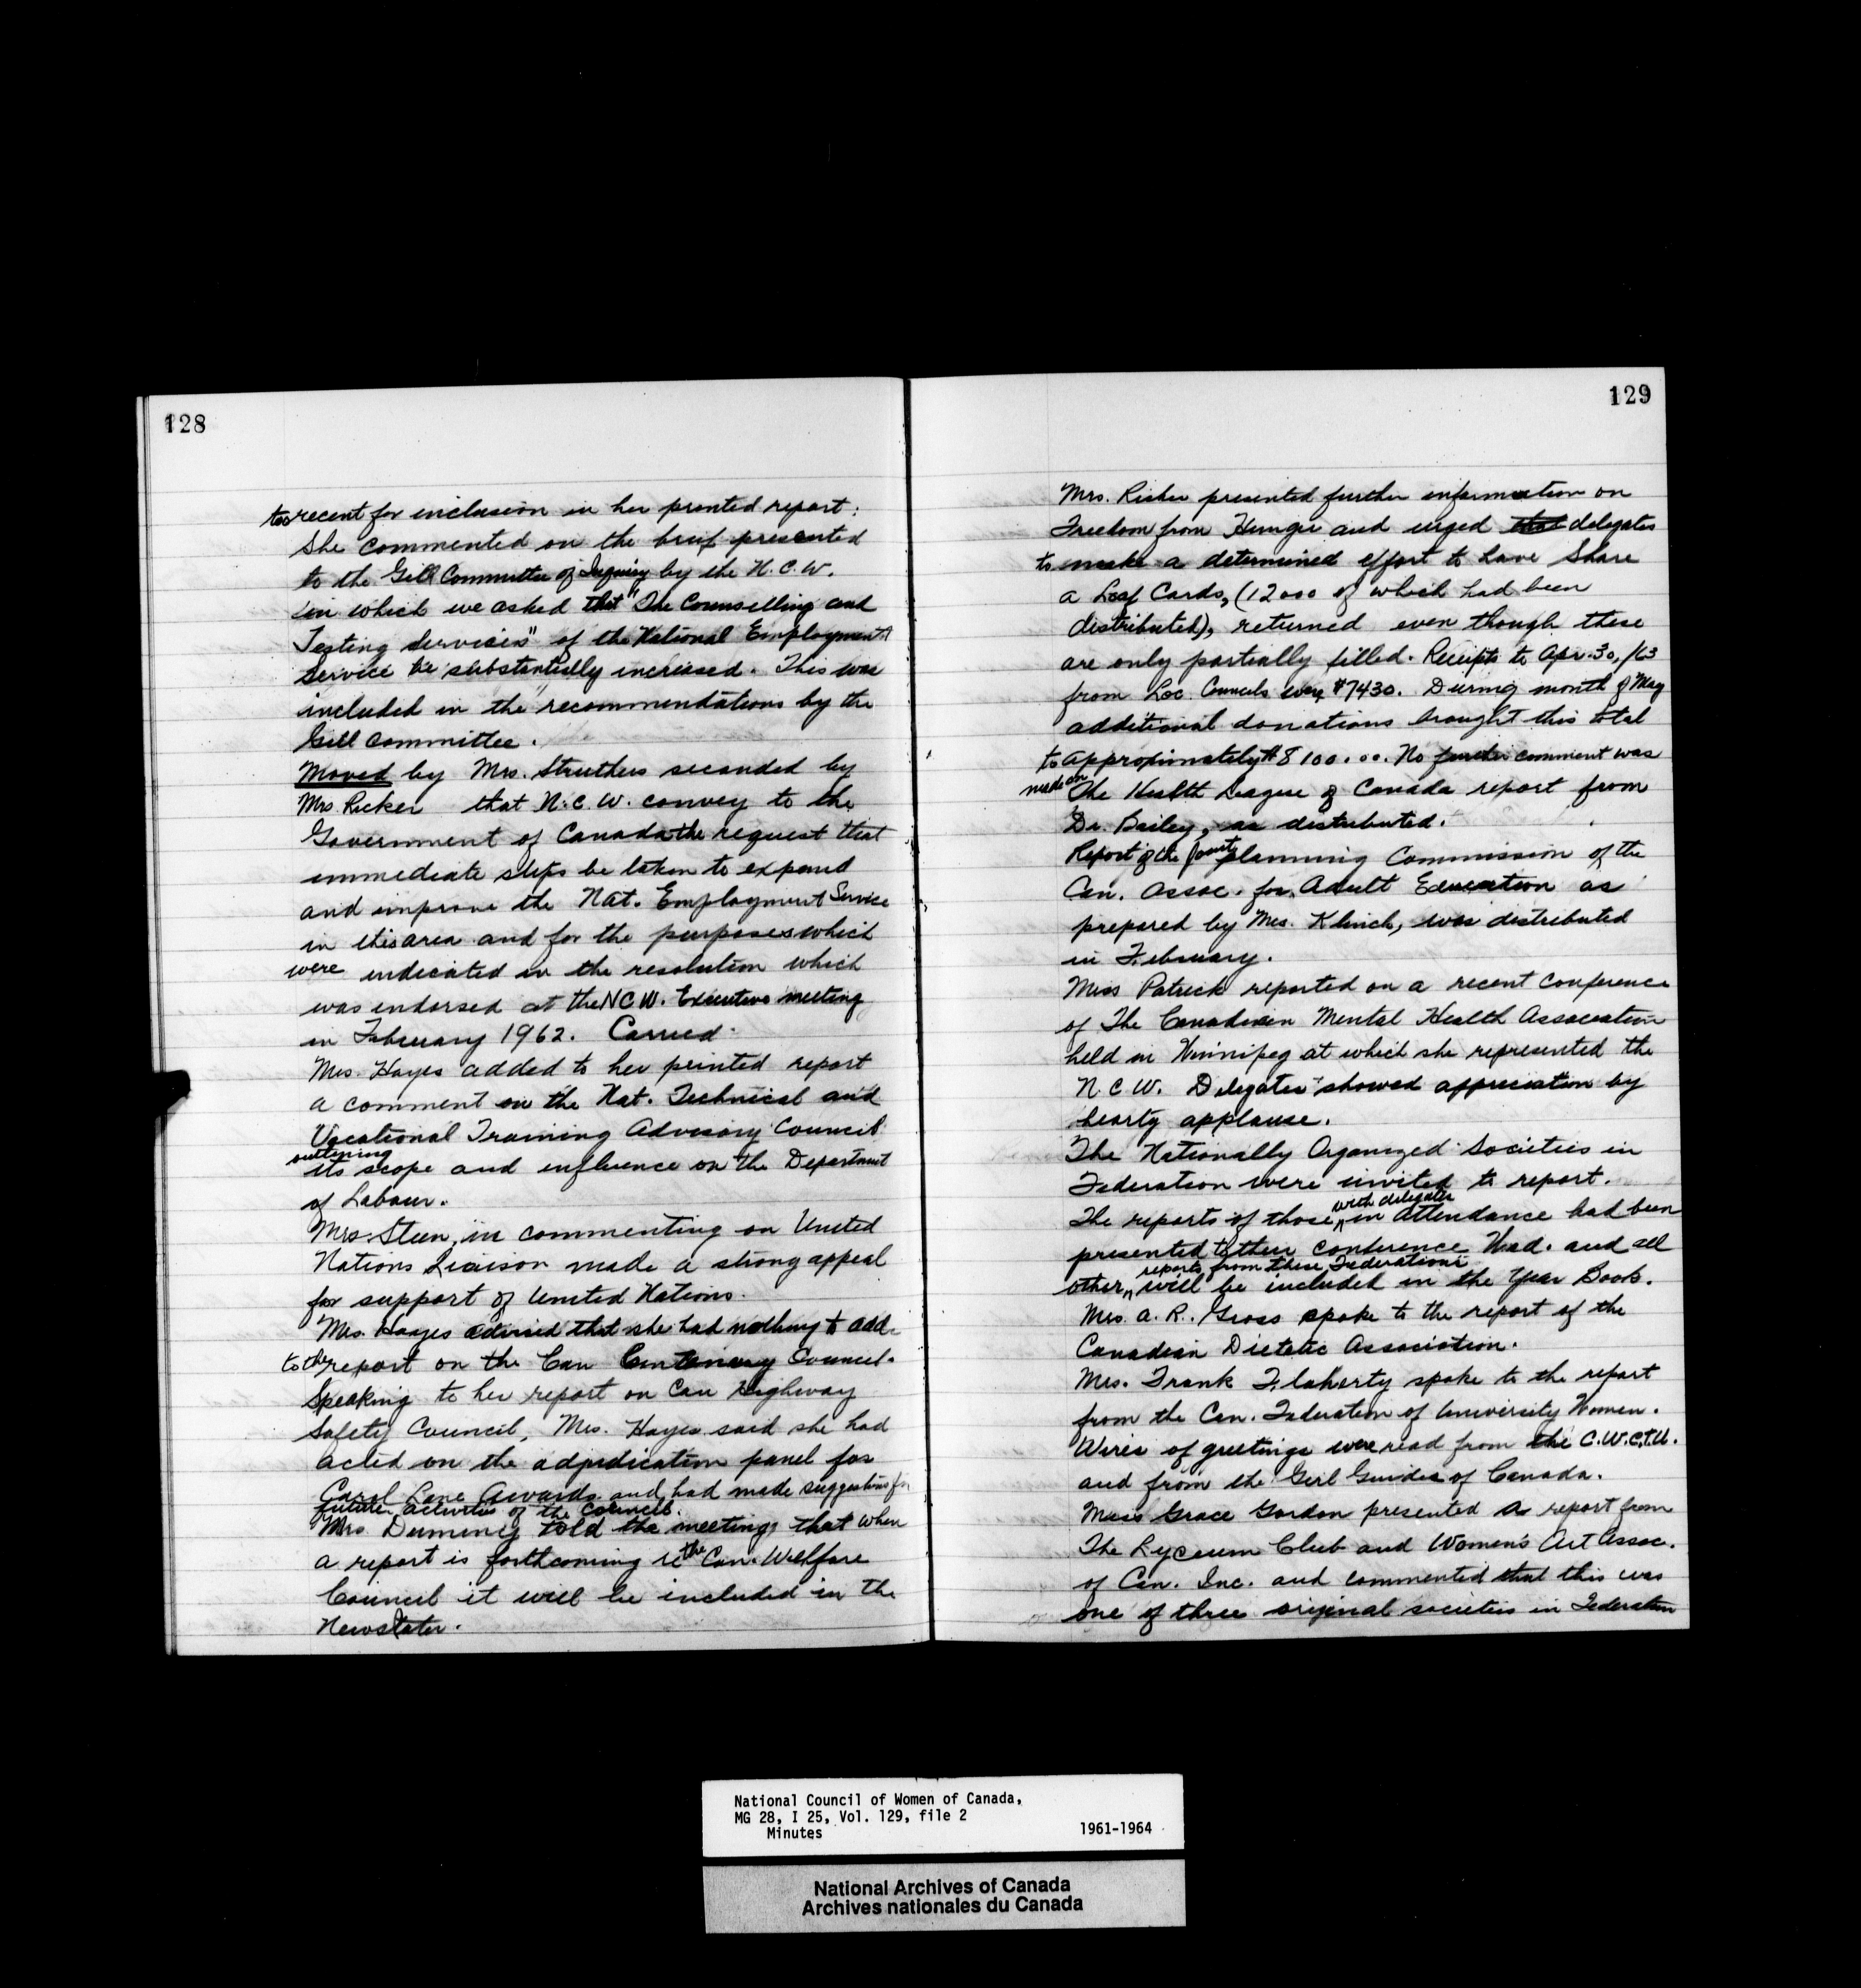 128
too recent for inclusion in her printed report:
She commented on the brief presented
to the Gill Committee of Inquiry by the N.C.W.
in which we asked that "The Counselling and
Testing Services" of the National Employment
Service be "substantially increased. This was
included in the recommendations by the
Gill Committee.
Moved by Mrs. Struthers seconded by
Mrs. Ricker that N.C.W. convey to the
Government of Canada the request that
immediate steps be taken to expand
and improve the Nat. Employment Service
in this area and for the purposes which
were indicated in the resolution which
was endorsed at the NCW. Executive meeting
in February 1962. Carried.
Mrs. Hayes added to her printed report
a comment on the Nat. Technical and
Vocational Training Advisory Council
outlining
its scope and influence on the Department
of Labour.
Mrs. Steen, in commenting on United
Nations Liaison made a strong appeal
for support of United Nations.
Mrs. Hayes advised that she had nothing to add
to the report on the Can Centenary Council.
Speaking to her report on Can Highway
Safety Council, Mrs. Hayes said she had
acted on the adjudication panel for
Carol Lane Awards and had made suggestions for
future activities of the Council.
Mrs. told the meeting that when
a report is forthcoming re the Can. Welfare
Council it will be included in the
Newsletter.
129
Mrs. Ricker presented further information on
Freedom from Hunger and urged that delegates
to make a determined effort to have Share
a Loaf Cards, (12000 of which had been
distributed), returned even though these
are only partially filled. Receipts to Apr. 30, /63
from Loc. Councils were $7430. During month of May
additional donations brought this total
to approximately $8100.00. No further comment was
made on The Health League of Canada report from
Dr. Bailey, as distributed.
Report of the Joint Planning Commission of the
Can. Assoc. for Adult Education as
prepared by Mrs. Klinck, was distributed
in February.
Miss Patrick reported on a recent Conference
of The Canadian Mental Health Association
held in Winnipeg at which she represented the
N.C.W. Delegates showed appreciation by
hearty applause.
The Nationally Organized Societies in
Federation were invited to report.
with delegates
The reports of those in attendance had been
presented to their conference Wed. and all
reports from these Federations
other, will be included in the Year Book.
Mrs. A. R. Gross spoke to the report of the
Canadian Dietetic Association.
Mrs. Frank Flaherty spoke to the report
from the Can. Federation of University Women.
Wires of greetings were read from the C.W.C.T.U.
and from the Girl Guides of Canada.
Miss Grace Gordon presented a report from
The Lyceum Club and Women's Art Assoc.
of Can. Inc. and commented that this was
one of three original societies in Federation
National Council of Women of Canada,
MG 28, I 25, Vol. 129, file 2
Minutes 1961-1964
National Archives of Canada
Archives nationales du Canada